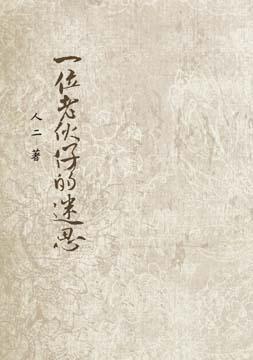 一位老伙仔的迷思
人二 著